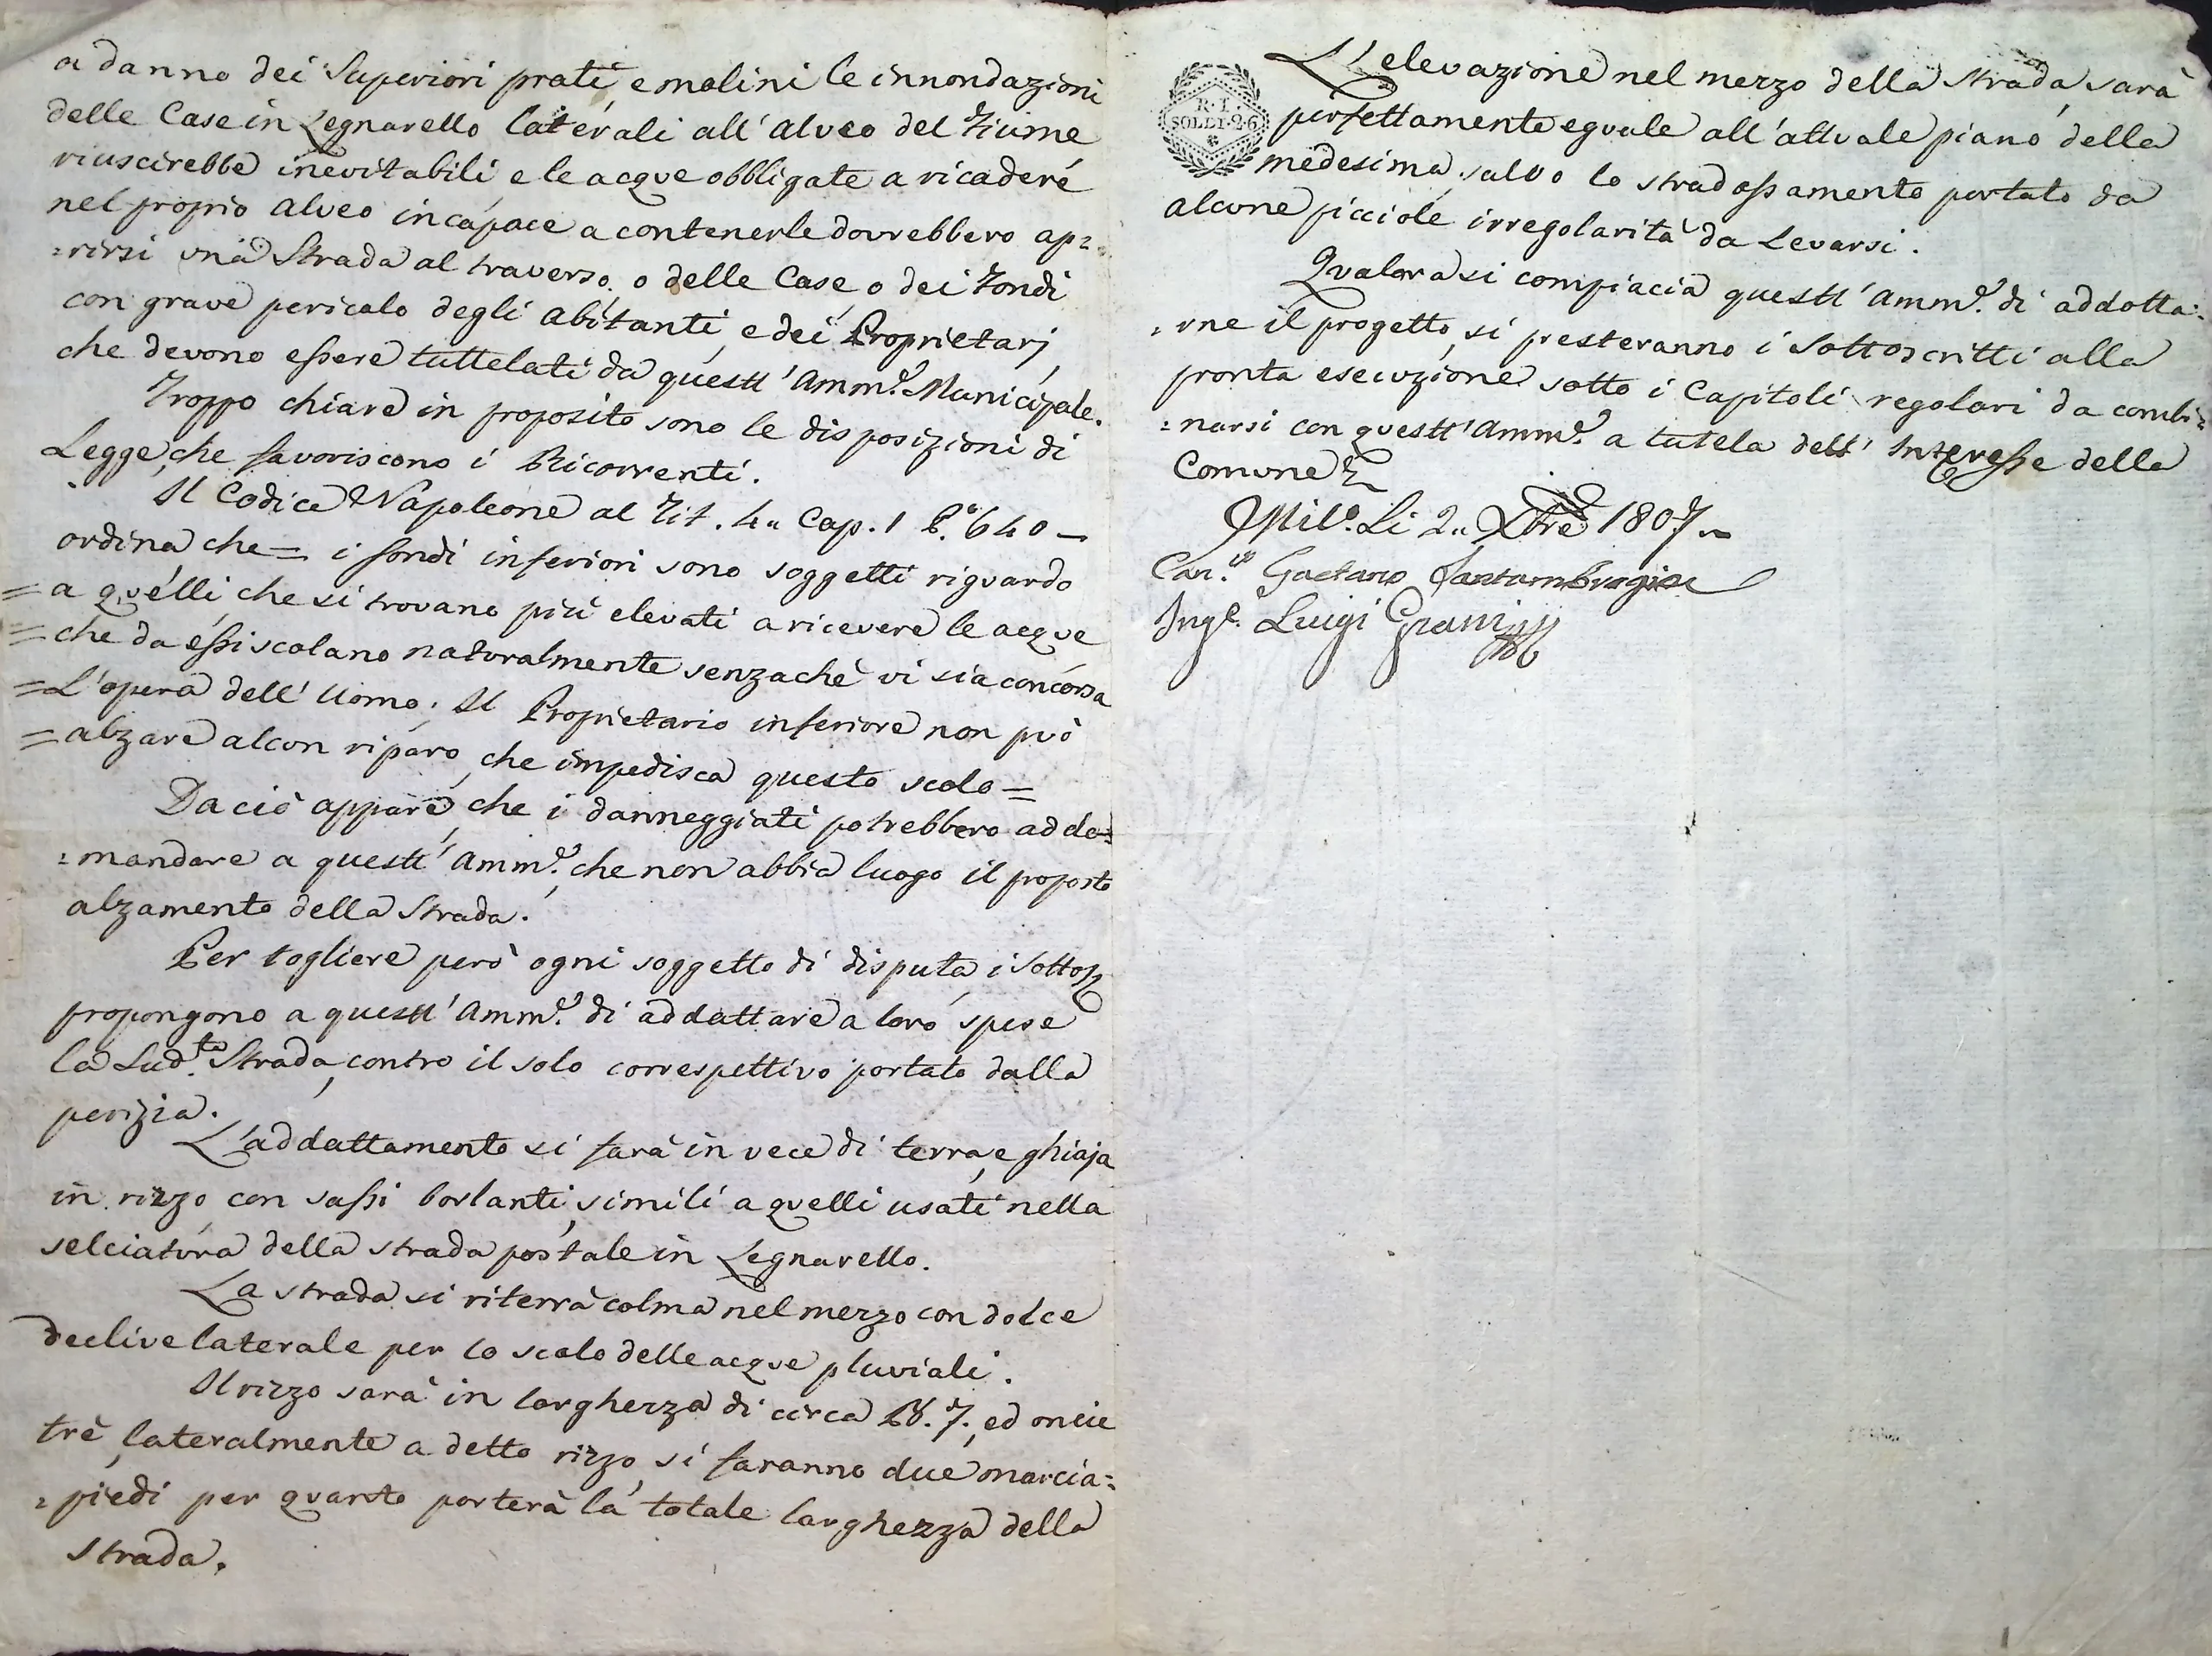 a danno dei Superiori prati, e molini le innondazioni
delle Case in Legnarello laterali all'alveo del Fiume
riuscirebbe inevitabili e le acque obbligate a ricadere
nel proprio alveo incapace a contenerle dovrebbero ap=
=rirsi una Strada al traverso, o delle Case, o dei Fondi
con grave pericolo degli abitanti, e dei Proprietarj,
che devono essere tuttelati da quest' Amm.e Municipale.
Troppo chiare in proposito sono le disposizioni di
Legge, che favoriscono i Ricorrenti.
Il Codice Napoleone al Tit. 4.. Cap. 1 P.o 640 =
ordina che = i fondi inferiori sono soggetti riguardo
= a quelli, che si trovano più elevati a ricevere le acque
= che da essi scolano naturalmente senzachè vi sia concorsa
= L'opera dell' Uomo; Il Proprietario inferiore non può
= alzare alcun riparo, che impedisca questo scolo =
Da ciò appare, che i danneggiati potrebbero addo=
=mandare a quest' Amm.e, che non abbia luogo il proposto
alzamento della Strada.
Per togliere però ogni soggetto di disputa, i Sottos.
propongono a quest' Amm.e di addattare a loro spese
la Sud.ta Strada, contro il solo correspettivo portato dalla
perizia.
L'addattamento si farà in vece di terra, e ghiaja
in rizzo con sassi borlanti, simili a quelli usati nella
selciatura della strada postale in Legnarello.
La strada si riterrà colma nel mezzo con dolce
declive laterale per lo scolo delle acque pluviali.
Il rizzo sarà in larghezza di circa B. 7., ed oncie
trè, lateralmente a detto rizzo, si faranno due marcia=
=piedi per quanto porterà la totale larghezza della
Strada.
R. I.
SOLDI 26
L'elevazione nel mezzo della Strada sarà
perfettamente eguale all'attuale piano della
medesima, salvo lo stradossamento portato da
alcune picciole irregolarità da Levarsi.
Qualora si compiacia quest' Amm.e di addotta=
=rne il progetto, si presteranno i Sottoscritti alla
pronta esecuzione sotto i Capitoli regolari da combi=
=narsi con quest' Amm.e a tutela dell' Interesse della
Comune
Mil.o Li 2.. Xbre 1807
Can.co Gaetano Santambrogio
Ing.e Luigi Grani